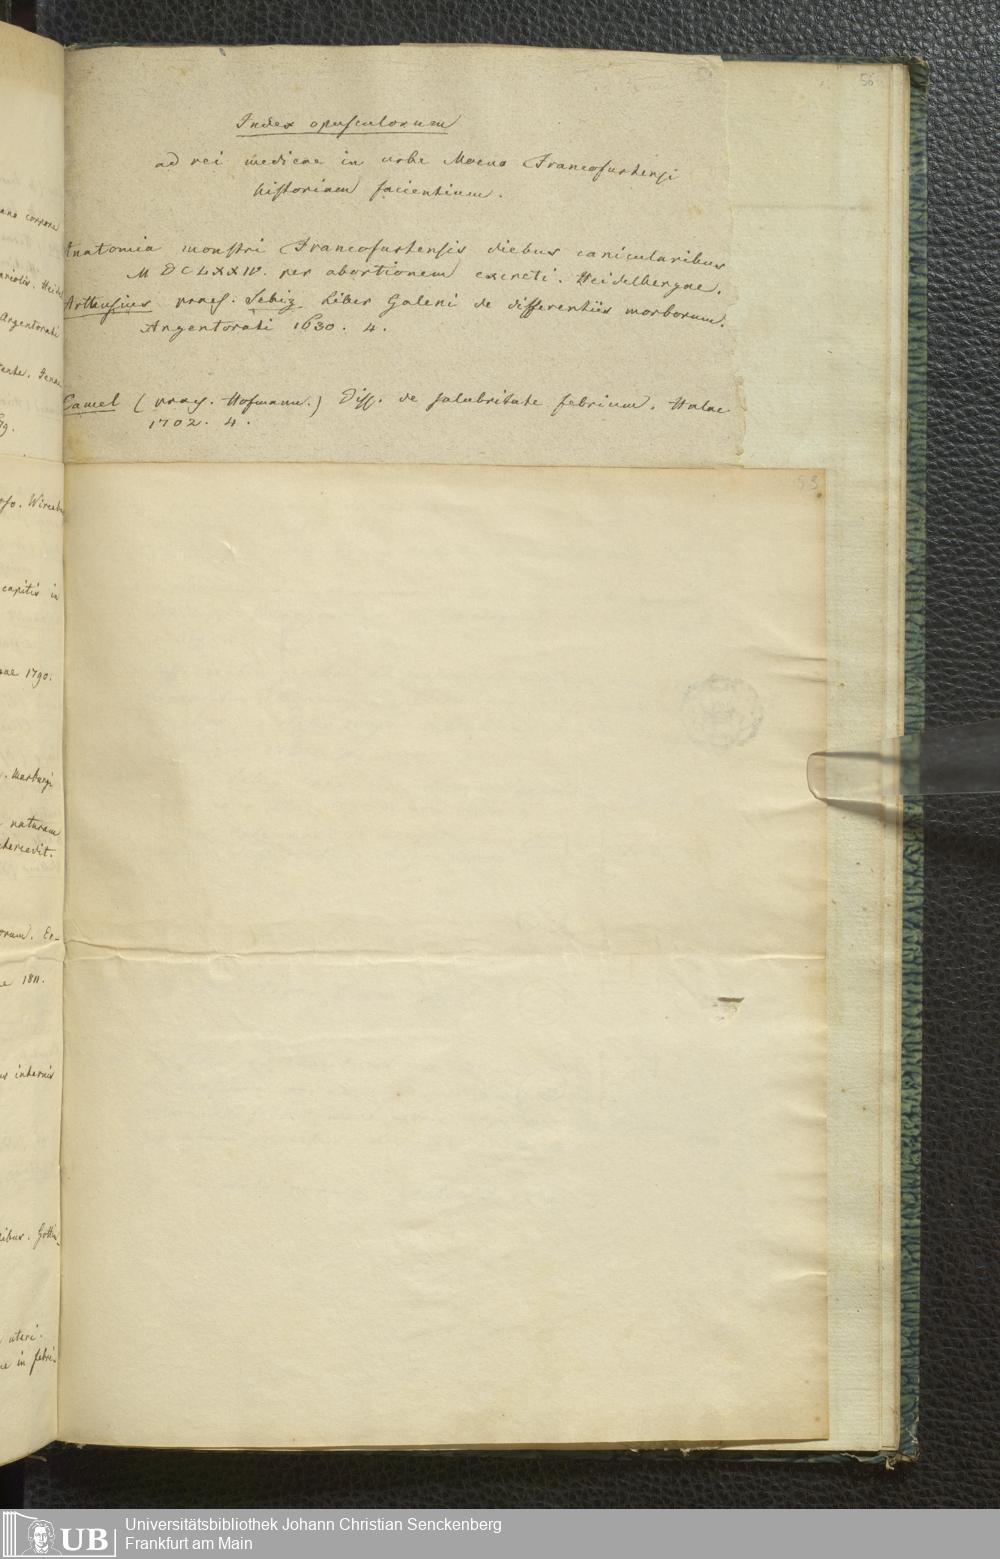 56
Index opusculorum
ad rei medicae in urbe Moeno Francofurtensi
historiam facientium.
Anatomia monstri Francofurtensis diebus canicularibus
MDCLXXIV. per abortionem excreti. Heidelbergae.
Arthusius praes. Sebiz Liber Galeni de differentiis morborum.
Argentorati 1630. 4.
Camel (praes. Hofmann.) Diss. de salubritate febrium. Halae
1702. 4.
53
capitis in
1790.
Marburgi
naturam
orum. Er-
1811.
internis
uteri.
in febri-
UB
Universitätsbibliothek Johann Christian Senckenberg
Frankfurt am Main